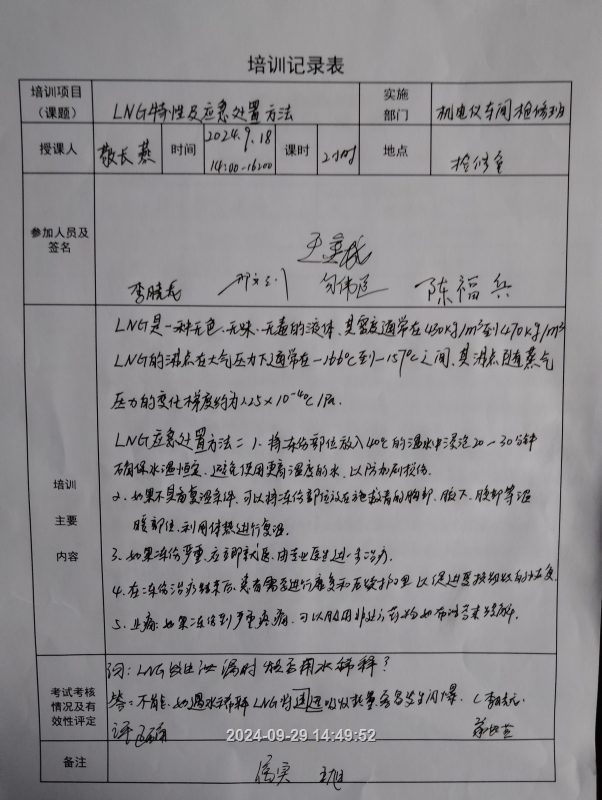 培训记录表
培训项目（课题） LNG特性及应急处置方法 实施部门 机电仪车间检修班
授课人 敬长燕 时间 2024.9.18 14:00-16:00 课时 2小时 地点 检修室
参加人员及签名
陈福兵
LNG是一种无色、无味、无毒的液体,其密度通常在430kg/m³到470kg/m³
LNG的沸点在大气压力下通常在-166℃到-157℃之间,其沸点随蒸气
压力的变化梯度约为1.25×10⁻⁴℃/Pa.
培训主要内容
LNG应急处置方法: 1、将冻伤部位放入40℃的温水中浸泡20-30分钟
确保水温恒定,避免使用更高温度的水,以防加剧损伤.
2、如果不具备复温条件,可以将冻伤部位放在施救者的胸部、腋下、腹部等温
暖部位,利用体热进行复温.
3、如果冻伤严重,应立即就医,由专业医生进一步治疗.
4、在冻伤治疗结束后,患者需要进行康复和后续护理,以促进受损
5、止痛:如果冻伤到严重疼痛,可以服用非处方药物如布洛芬来缓解.
考试考核情况及有效性评定
问:LNG发生泄漏时能否用水稀释?
答:不能,如遇水稀释LNG将迅速吸收热量,容易发生闪爆.
评:正确
2024-09-29 14:49:52
备注 属实